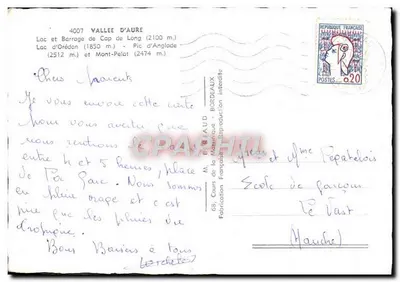 4007 VALLEE D'AURE
Lac et Barrage de Cap de Long (2100 m.)
Lac d'Orédon (1850 m.) - Pic d'Anglade
(2512 m.) et Mont-Pelat (2474 m.)
Chers
Je vous envoie cette carte
pour vous avertir que
nous rentrions
entre 4 et 5 heures place
de la Gare. Nous sommes
en plein orage et c'est
pire que les pluies des
tropiques.
Bons Baisers à tous
M.
68, Cours de la Martinique - BORDEAUX
Fabrication Française - Reproduction interdite
REPUBLIQUE FRANÇAISE
POSTES
0,20
et Mme
Ecole de garçons
Le Vast
(Manche)
CARTORUM